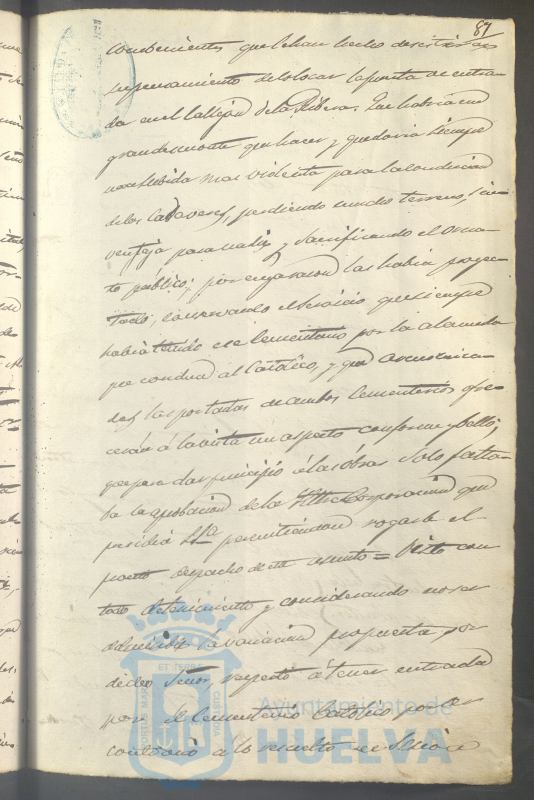 87
convenientes que le han hecho desistir en
su pensamiento de colocar la puerta de entra-
da en el Callejon de la Ribera. Que habria un
grande monte que hacer y quedaria siempre
una subida mas violenta para la conduccion
de los Cadaveres, perdiendo mucho terreno, sin
ventaja para nadie y sacrificando el orna-
to público; por cuya razon las habia proyec-
tado, conservando el servicio que siempre
habia tenido ese Cementerio por la alameda
que conduce al Católico, y que
las portadas de ambos Cementerios ofre-
cerán á la vista un aspecto conforme y bello;
que para dar principio á las obras solo falta-
ba la aprobacion de la Iltre Corporacion que
presidia permitiendose rogarle el
pronto despacho de este asunto = Visto con
todo detenimiento y considerando no ser
admisible la variacion propuesta por
dicho Señor, respecto á tener entrada
por el Cementerio Católico por ser
contrario á lo resuelto en
Ayuntamiento de
HUELVA